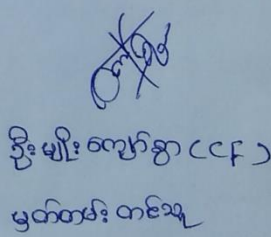 ဦးမျိုးကျော်စွာ (CCF)
မှတ်တမ်းတင်သူ